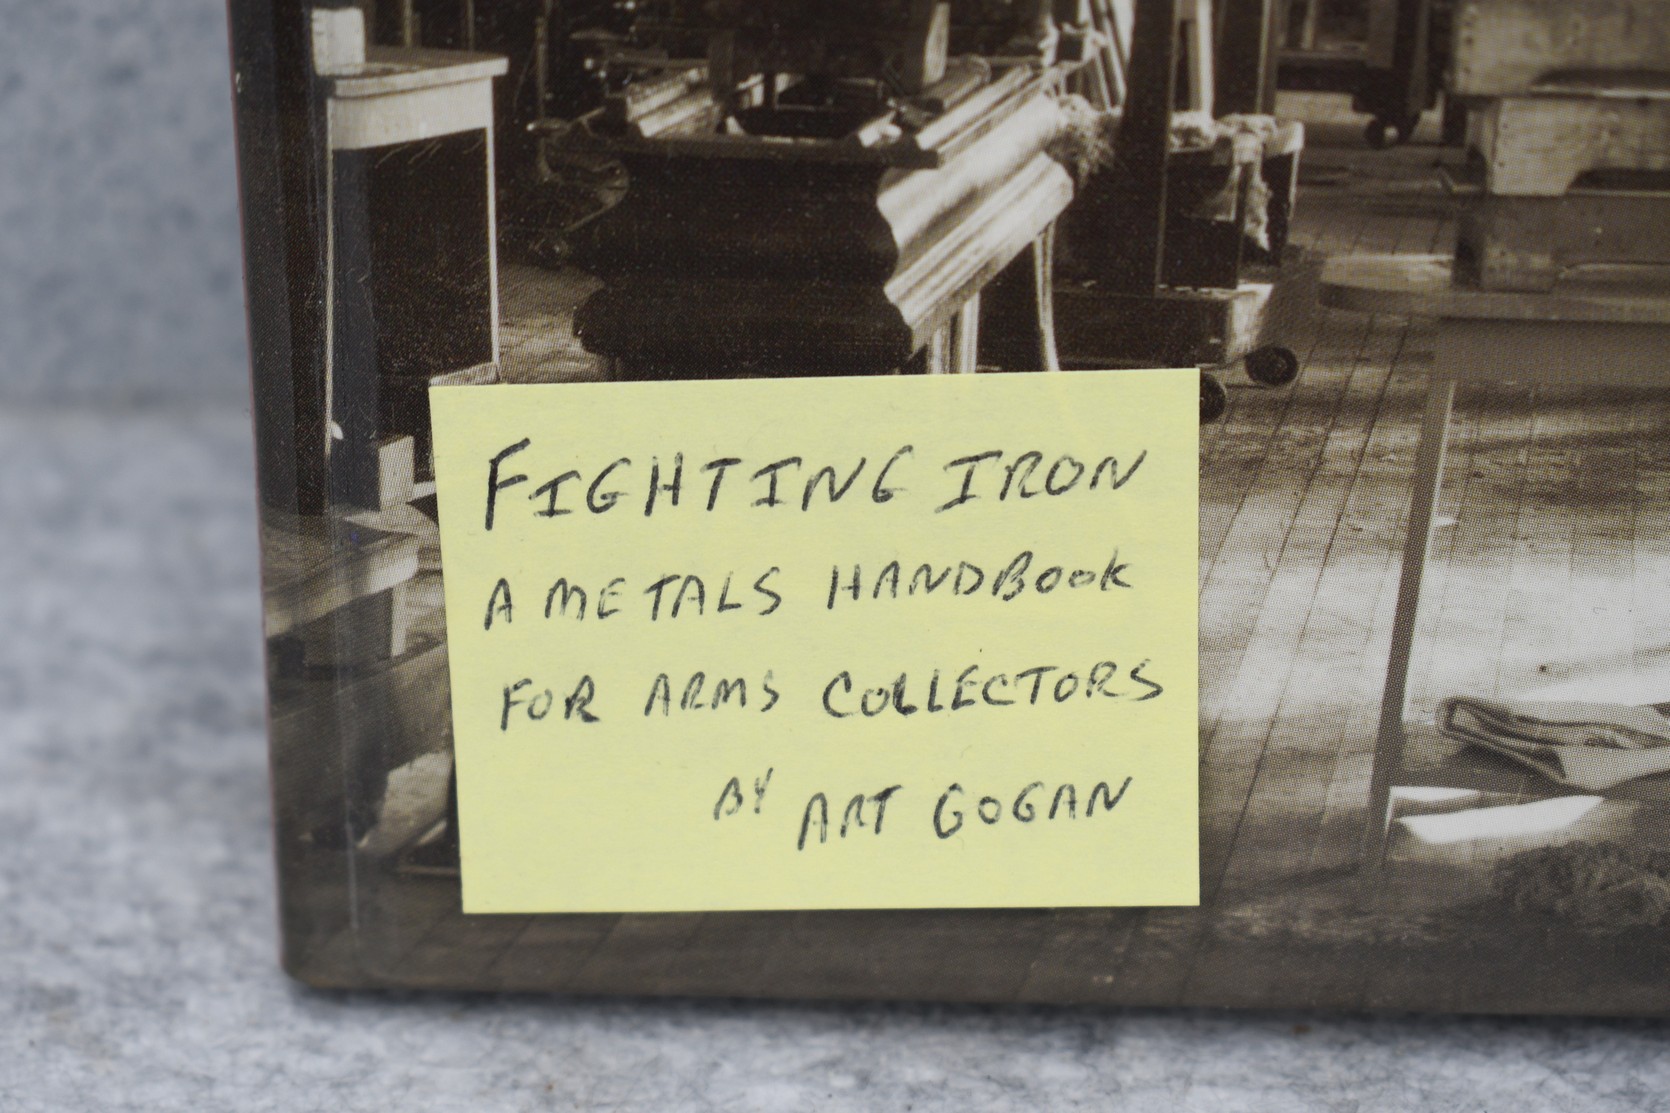 FIGHTING IRON
A METALS HANDBOOK
FOR ARMS COLLECTORS
BY ART GOGAN